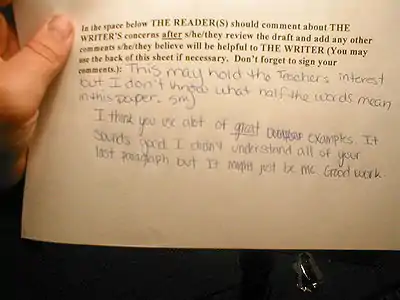 In the space below THE READER(S) should comment about THE
WRITER'S concerns after s/he/they review the draft and add any other
comments s/he/they believe will be helpful to THE WRITER (You may
use the back of this sheet if necessary. Don't forget to sign your
comments.): This may hold the Teacher's interest
but I don't know what half the words mean
in this paper.
I think you use alot of great examples. It
sounds good I didn't understand all of your
last paragraph but It might just be me Good work.